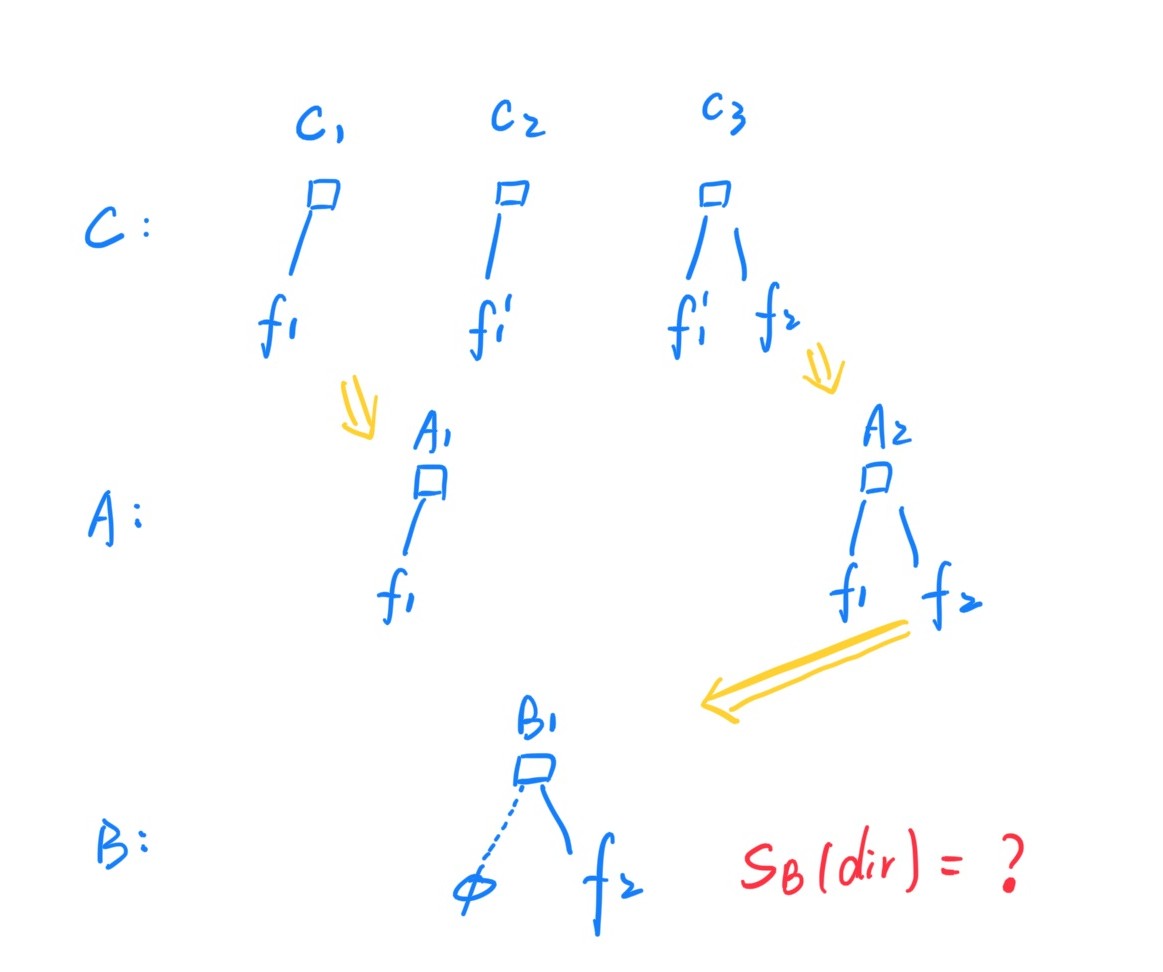 C₁ C₂ C₃
C:
f₁ f₁' f₁' f₂
A₁ A₂
A:
f₁ f₁ f₂
B₁
B:
φ f₂ S_B(dir) = ?